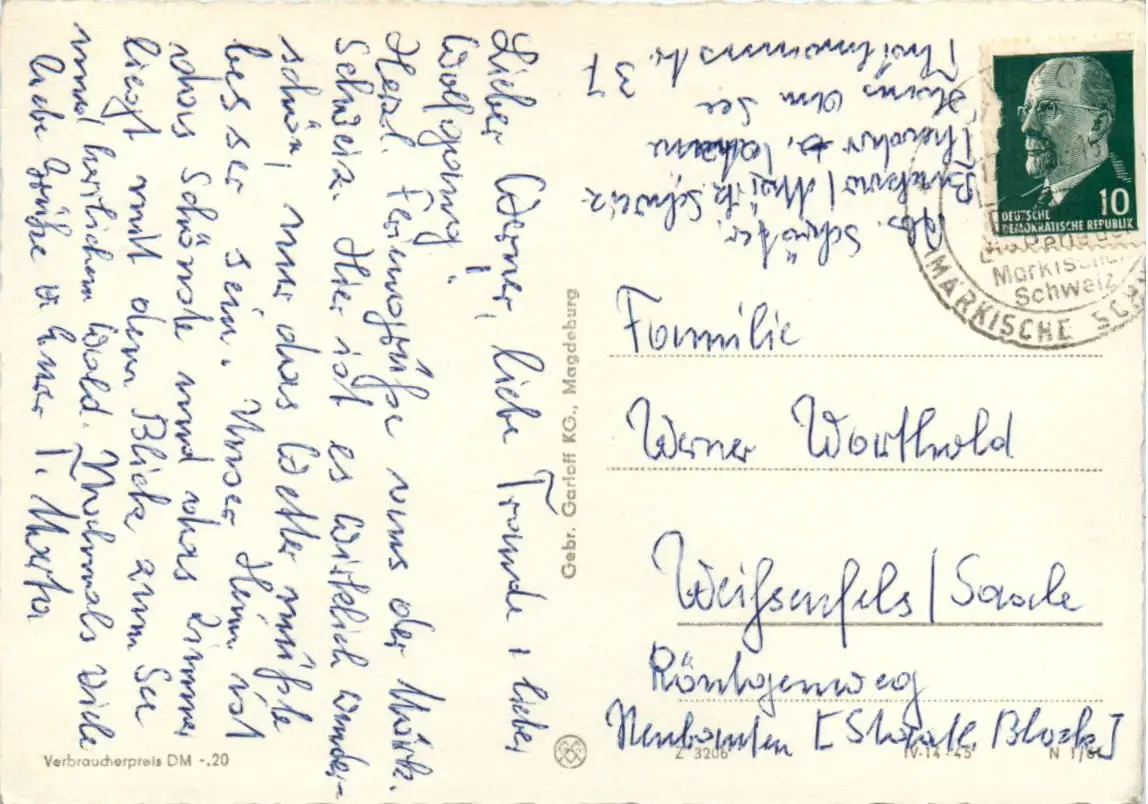 Lieber Werner, liebe Traude, lieber
Wolfgang!
Herzl. Feriengrüße aus der Märk.
Schweiz. Hier ist es wirklich wunder-
schön, nur das Wetter müßte
besser sein. Unser Heim ist
das Schönste und das Zimmer
liegt mit dem Blick zum See
und herrlichem Wald. Nochmals viele
liebe Grüße v. Eurer T. Marta
Abs. Schröter,
Buckow/Märk. Schweiz
Haus am See
37
Familie
Werner Worthold
Weißenfels/Saale
Röntgenweg
Neubauten [Staatl. Block]
DEUTSCHE
DEMOKRATISCHE REPUBLIK
10
Märkische
Schweiz
MÄRKISCHE
Gebr. Garloff KG., Magdeburg
Verbraucherpreis DM -.20
Z 3206
IV-14-45
N 1/